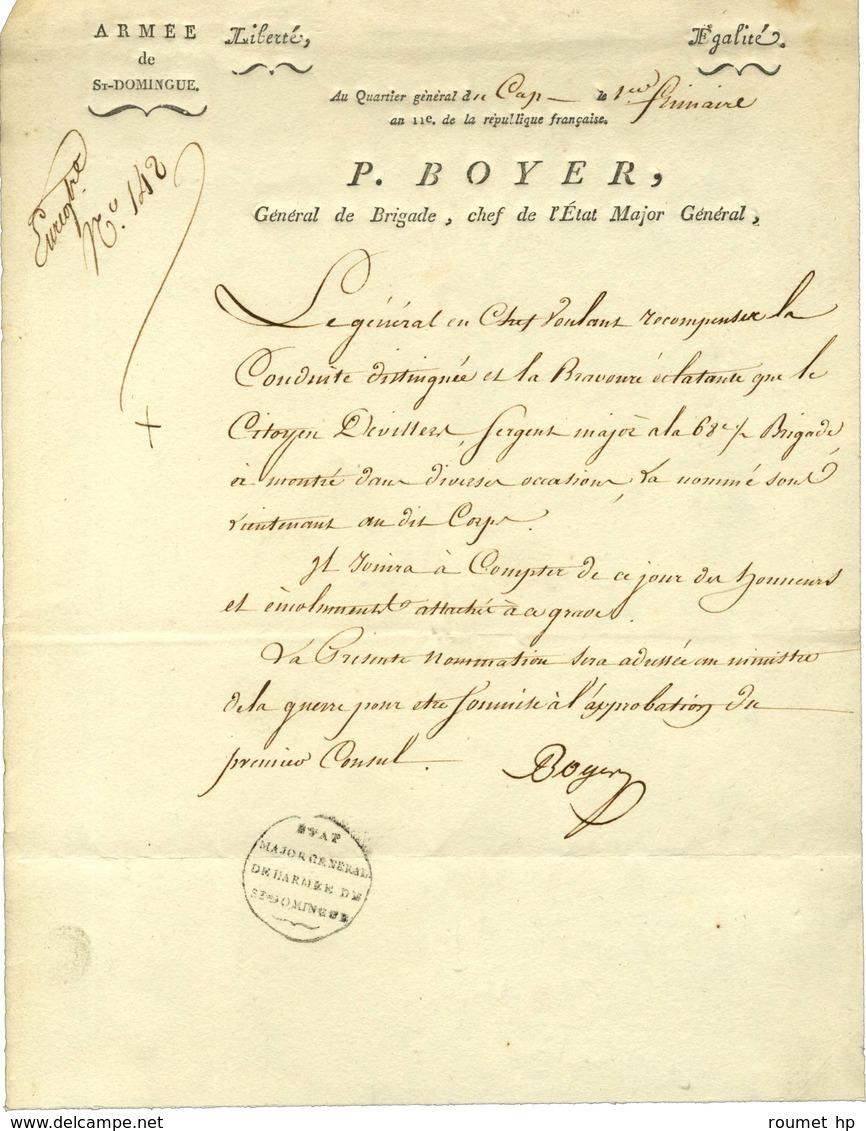 ARMÉE
de
ST-DOMINGUE.
Liberté,
Égalité.
Au Quartier général du Cap le 1er frimaire
an 11e. de la république française.
Enregtré
N.o 142
P. BOYER,
Général de Brigade, chef de l'État Major Général,
Le général en Chef Voulant recompenser la
Conduite distinguée et la Bravoure éclatante que le
Citoyen Devillers, Sergent major a la 68e 1/2 Brigade
a montré dans diverses occasions, la nommé sous
Lieutenant au dit Corps.
Il Jouira à Compter de ce jour des honneurs
et émoluments attachés à ce grade.
La Présente nommation sera adressée au ministre
de la guerre pour etre Soumise à l'approbation du
premier Consul.
Boyer
ETAT
MAJOR GENERAL
DE L'ARMEE DE
ST-DOMINGUE
www.delcampe.net
roumet hp